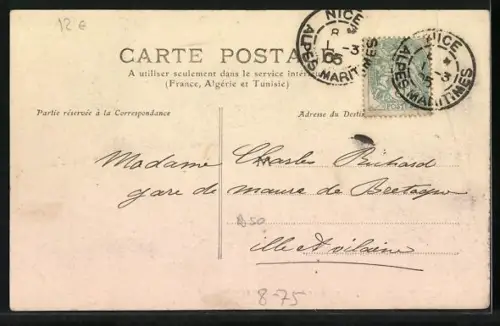 12 €
NICE
8
1-3
05
ALPES MARITIMES
NICE
ALPES MARITIMES
CARTE POSTALE
A utiliser seulement dans le service intérieur
(France, Algérie et Tunisie)
Partie réservée à la Correspondance
Adresse du Destin
Madame Charles Richard
gare de maure de Bretagne
ille et vilaine
8-75